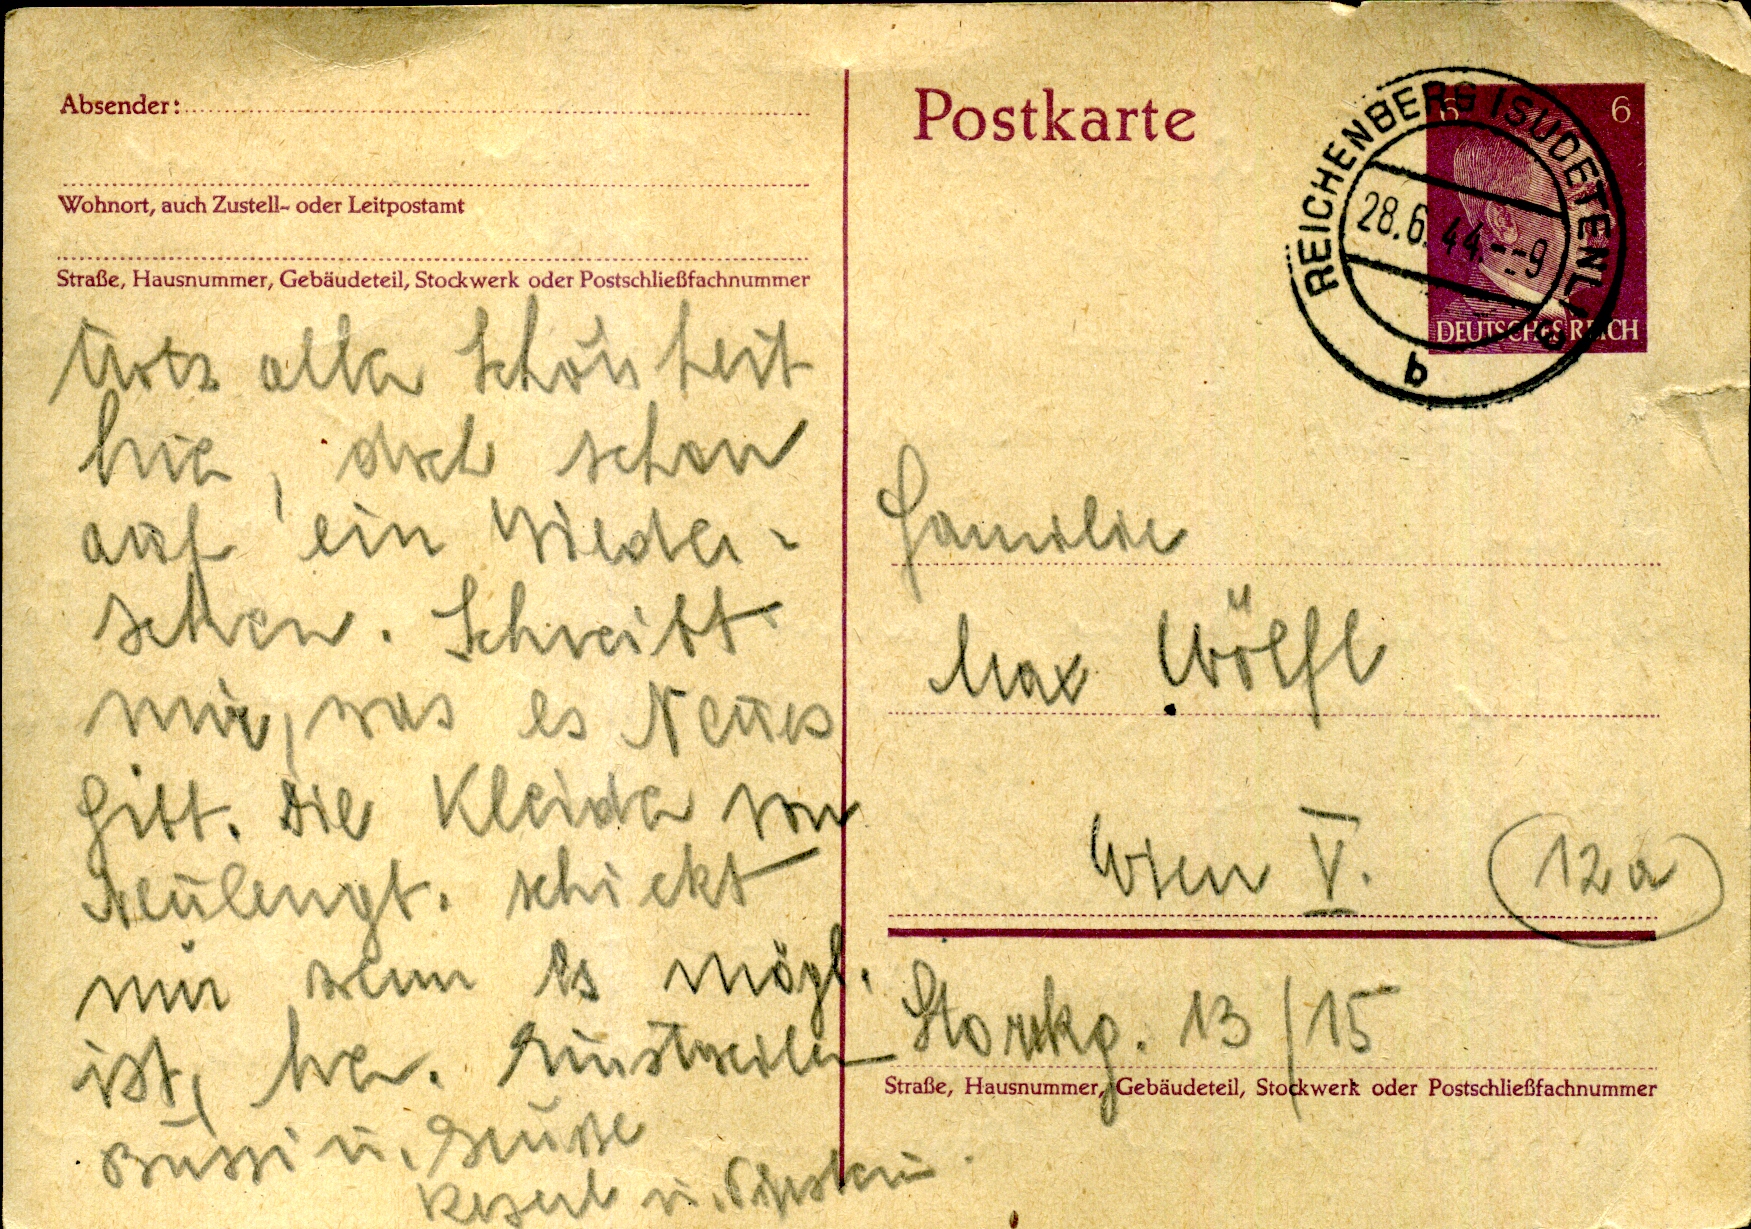 Absender:
Wohnort, auch Zustell- oder Leitpostamt
Straße, Hausnummer, Gebäudeteil, Stockwerk oder Postschließfachnummer
trotz aller Schönheit
hier, doch schon
auf ein Wieder-
sehen. Schreibt
mir, was es Neues
gibt. Die Kleider von
Neulengb. schickt
mir wenn es mögl.
ist, her. Einstweilen
Bussi u. Grüße
u.
Postkarte
6 6
REICHENBERG (SUDETENL)
28.6.44.--9
b
DEUTSCHES REICH
Familie
Max Wölfl
Wien V. 12a
Storkg. 13/15
Straße, Hausnummer, Gebäudeteil, Stockwerk oder Postschließfachnummer